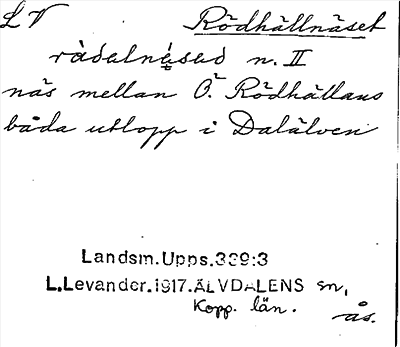 LV Rödhällnäset
rådelnésed n. II
näs mellan Ö. Rödhällans
båda utlopp i Dalälven
Landsm. Upps. 339:3
L. Levander. 1917. ÄLVDALENS sn,
Kopp. län.
ås.